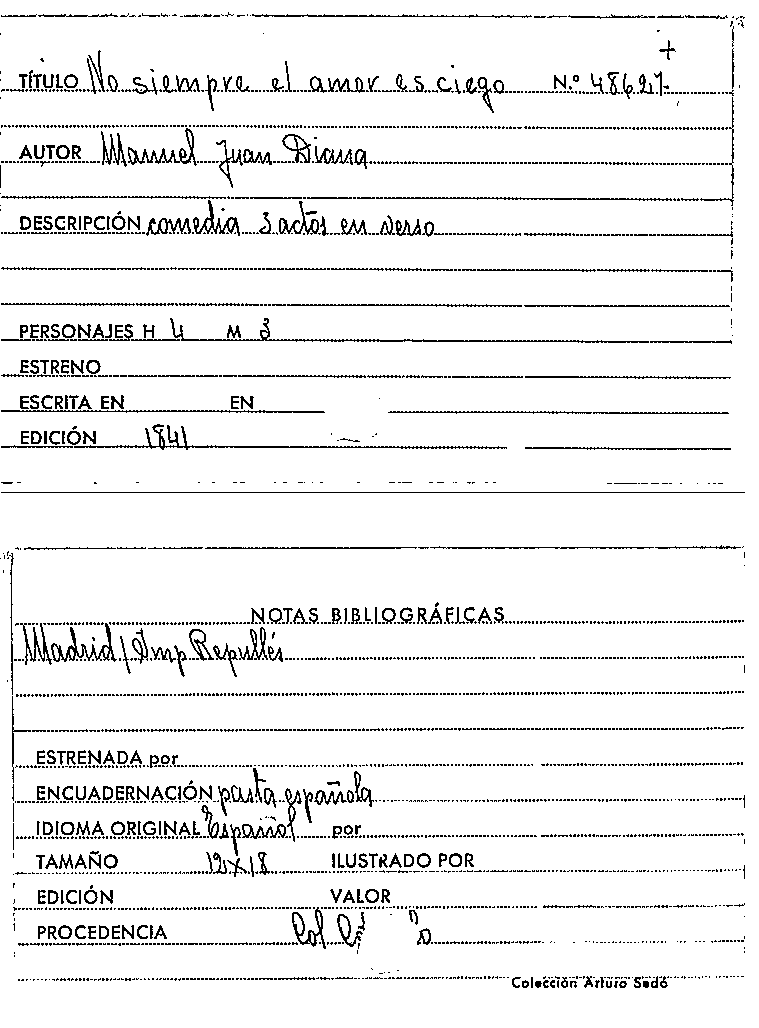 +
TÍTULO No siempre el amor es ciego N.º 48627
AUTOR Manuel Juan Diana
DESCRIPCIÓN comedia 3 actos en verso
PERSONAJES H 4 M 3
ESTRENO
ESCRITA EN EN
EDICIÓN 1841
NOTAS BIBLIOGRÁFICAS
Madrid / Imp Repullés
ESTRENADA por
ENCUADERNACIÓN pasta española
IDIOMA ORIGINAL Español por
TAMAÑO 12x18 ILUSTRADO POR
EDICIÓN VALOR
PROCEDENCIA Col
Colección Arturo Sedó